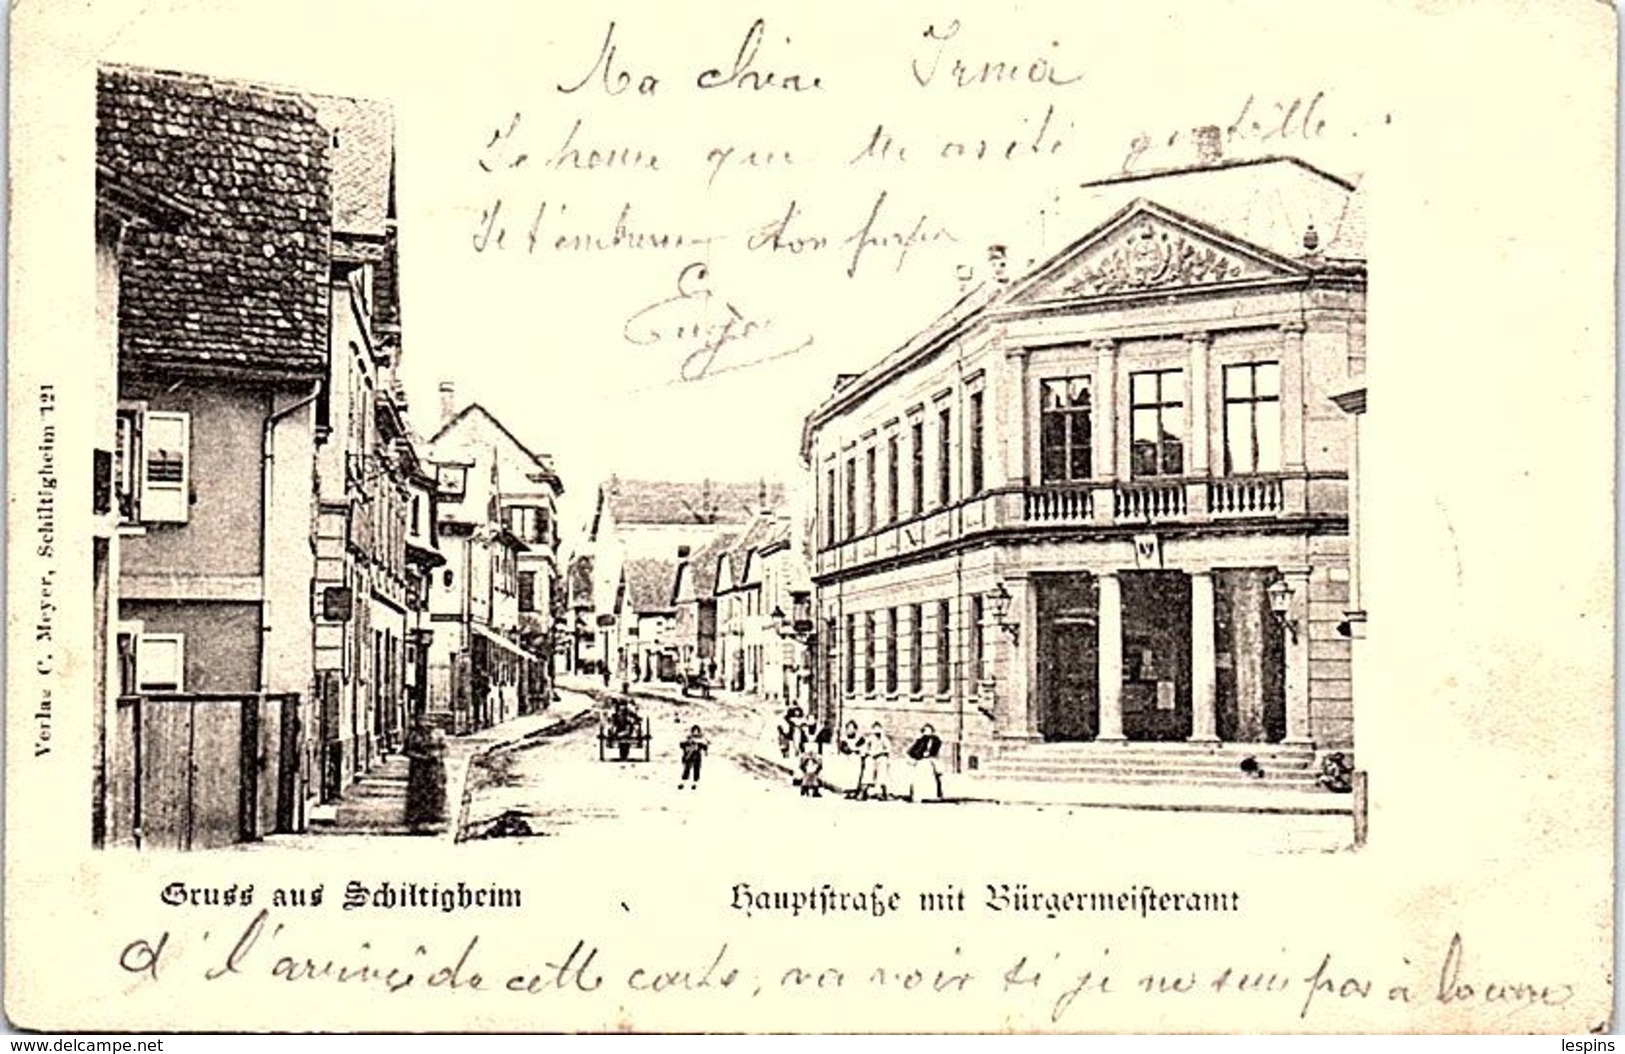 Ma chère Irma
Je        que tu as été gentille.
Je t'embrasse Ton papa
Verlag C. Meyer, Schiltigheim 121
Gruss aus Schiltigheim
Hauptstraße mit Bürgermeisteramt
à l'arrivée de cette carte, va voir si je ne suis pas à la
www.delcampe.net
lespins